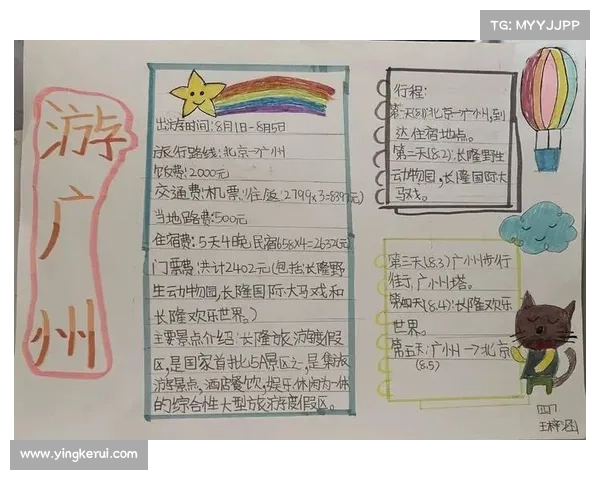 TG: MYYJJPP
游广州
出游时间:8月1日-8月5日
旅行路线:北京→广州
饮费:2000元
交通费:机票(往返)2799×3=8397元)
当地路费:500元
住宿费:5天4晚,民宿658×4=2632(元)
门票费:共计2402元(包括:长隆野
生动物园,长隆国际大马戏和
长隆欢乐世界。)
主要景点介绍:长隆旅游度假
区,是国家首批5A景区之一,是集旅
游景点,酒店餐饮,娱乐休闲为一体
的综合性大型旅游度假区。
行程:
第一天(8.1)北京→广州,到
达住宿地点。
第二天(8.2):长隆野生
动物园,长隆国际大
马戏。
第三天(8.3)广州步行
街,广州塔。
第四天(8.4):长隆欢乐
世界。
第五天:广州→北京
(8.5)
四7
王梓涵
www.yingkerui.com